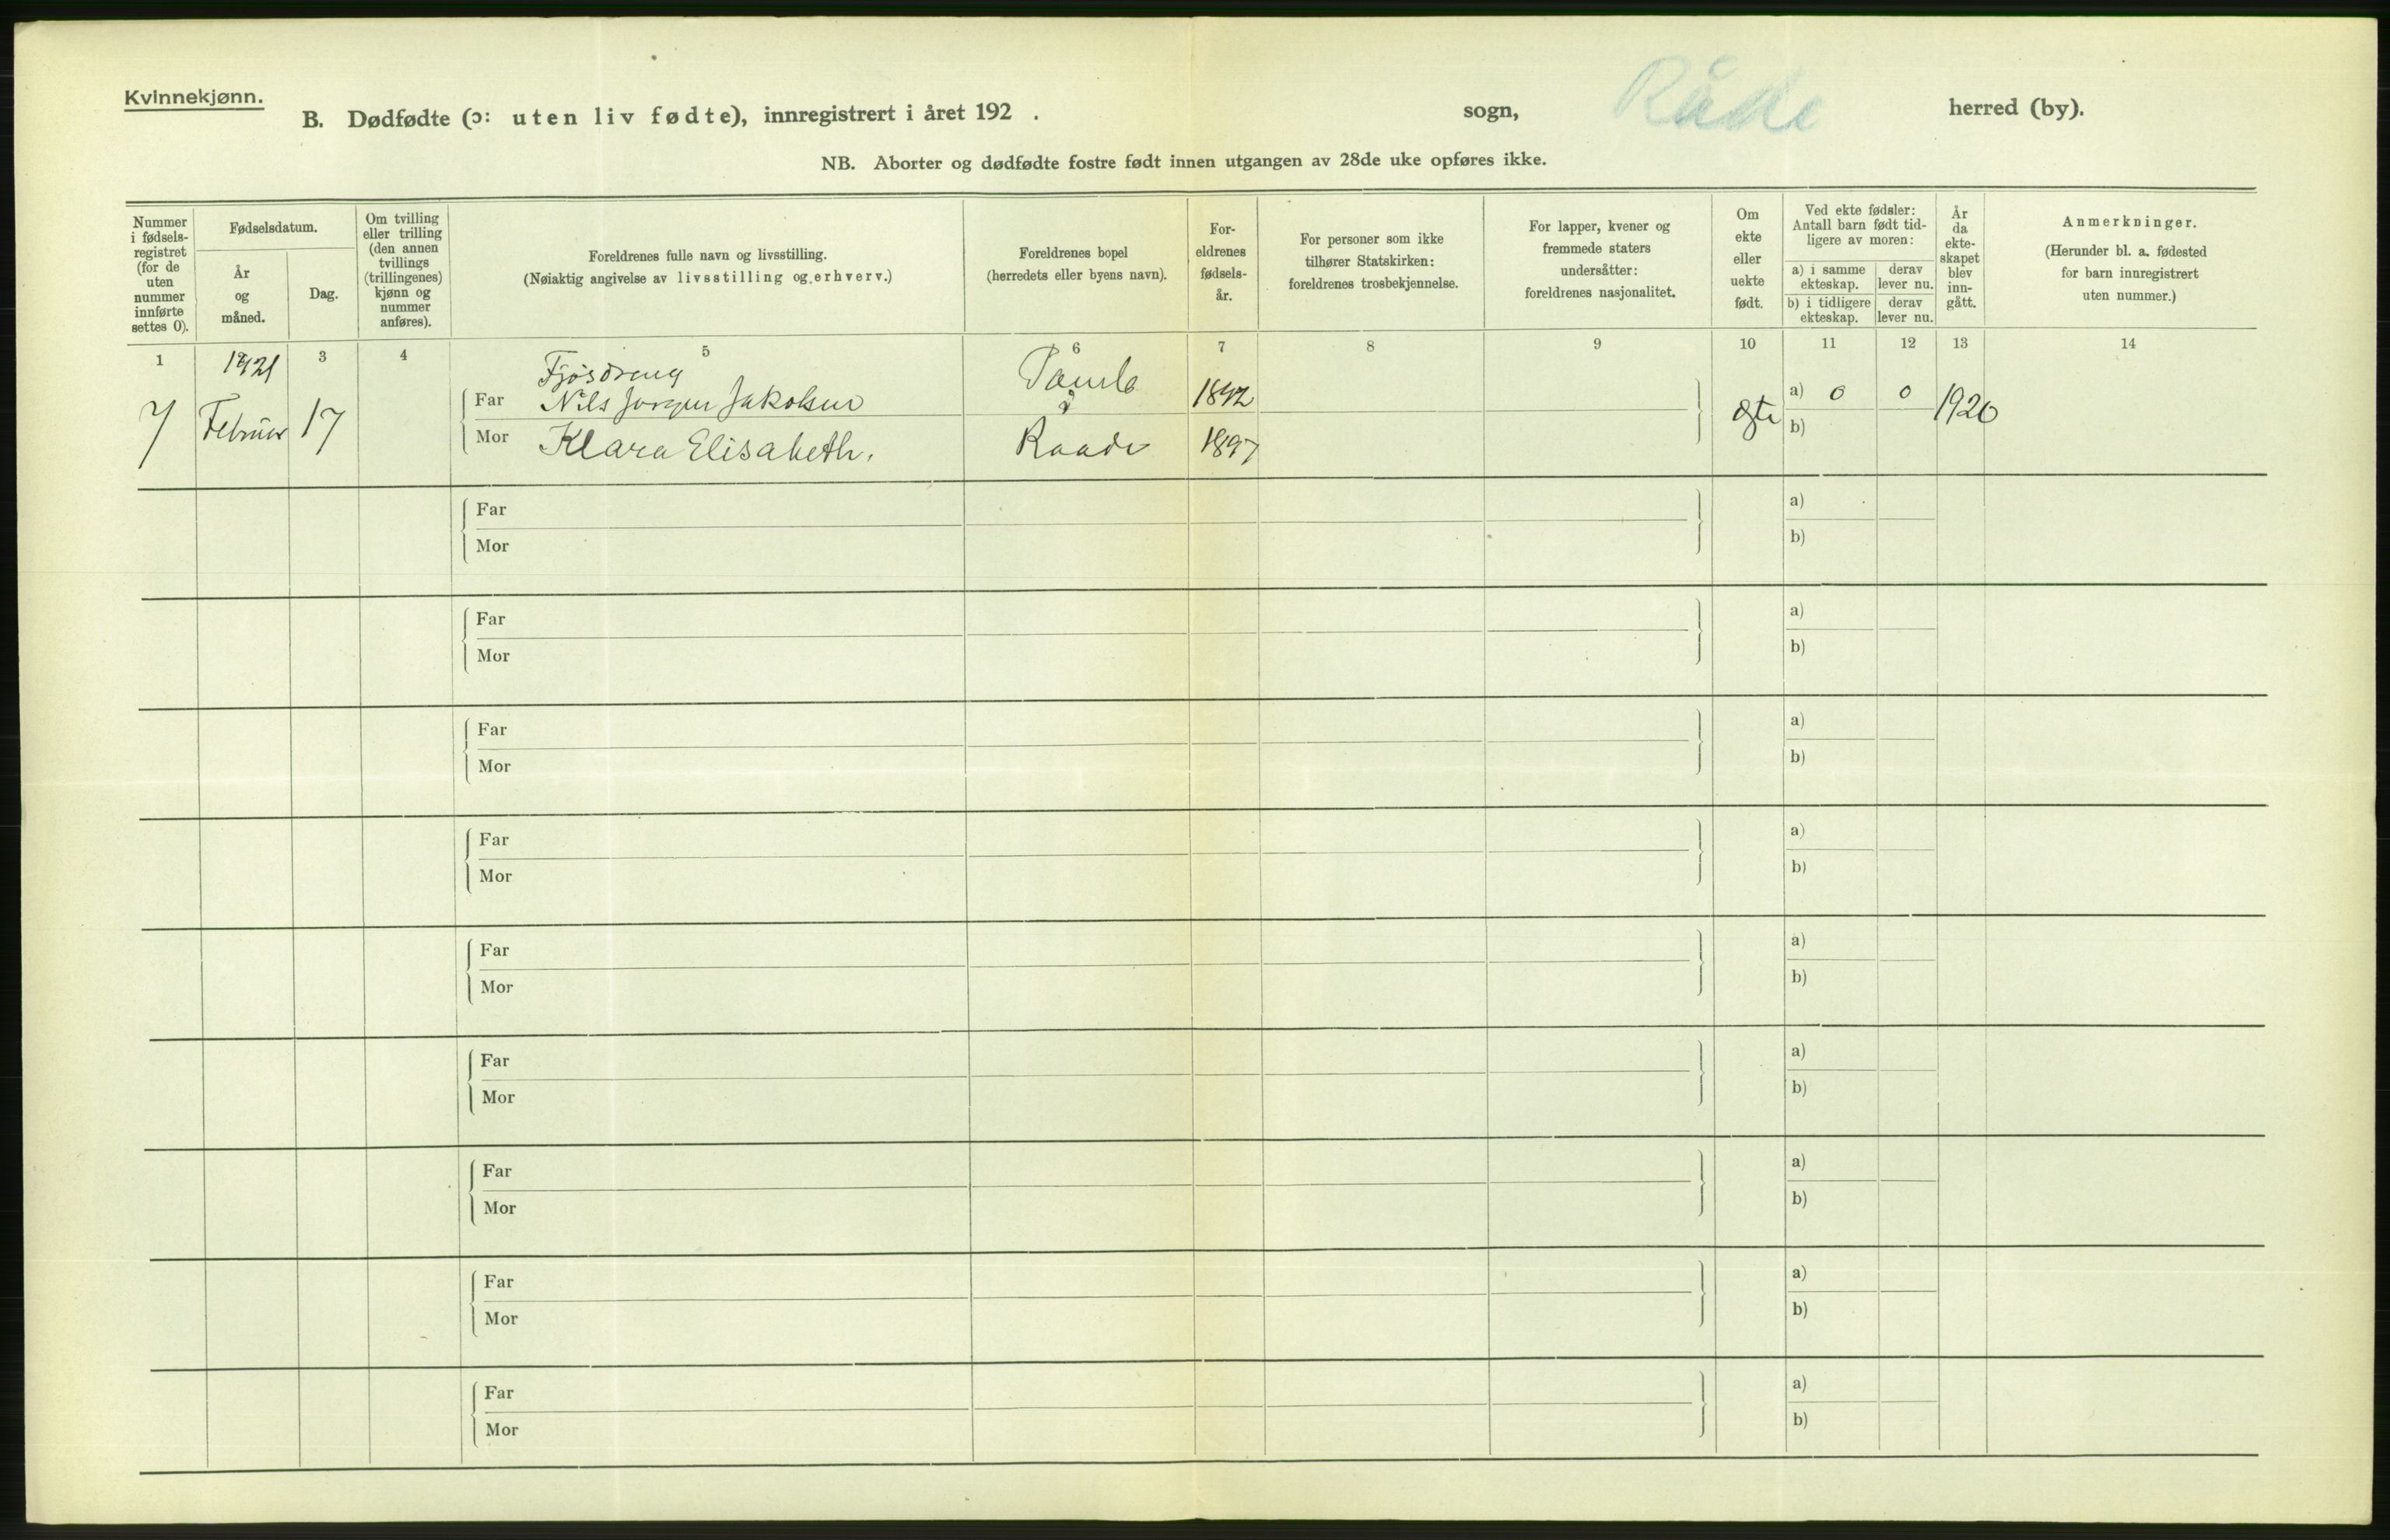 Kvinnekjønn.
B. Dødfødte (ɔ: uten liv fødte), innregistrert i året 192 . sogn, Råde herred (by).
NB. Aborter og dødfødte fostre født innen utgangen av 28de uke opføres ikke.
Nummer i fødsels-registret (for de uten nummer innførte settes 0).
Fødselsdatum.
År og måned.
Dag.
Om tvilling eller trilling (den annen tvillings (trillingenes) kjønn og nummer anføres).
Foreldrenes fulle navn og livsstilling.
(Nøiaktig angivelse av livsstilling og erhverv.)
Foreldrenes bopel
(herredets eller byens navn).
For-eldrenes fødsels-år.
For personer som ikke tilhører Statskirken: foreldrenes trosbekjennelse.
For lapper, kvener og fremmede staters undersåtter: foreldrenes nasjonalitet.
Om ekte eller uekte født.
Ved ekte fødsler: Antall barn født tid-ligere av moren:
a) i samme ekteskap. derav lever nu.
b) i tidligere ekteskap. derav lever nu.
År da ekte-skapet blev inn-gått.
Anmerkninger.
(Herunder bl. a. fødested for barn innregistrert uten nummer.)
1 1921 3 4 5 6 7 8 9 10 11 12 13 14
Fjøsdreng
7 Februar 17 Far Nils Jørgen Jakobsen 1892 ægte a) 0 0 1920
Mor Klara Elisabeth. Raade 1897 b)
Far a)
Mor b)
Far a)
Mor b)
Far a)
Mor b)
Far a)
Mor b)
Far a)
Mor b)
Far a)
Mor b)
Far a)
Mor b)
Far a)
Mor b)
Far a)
Mor b)